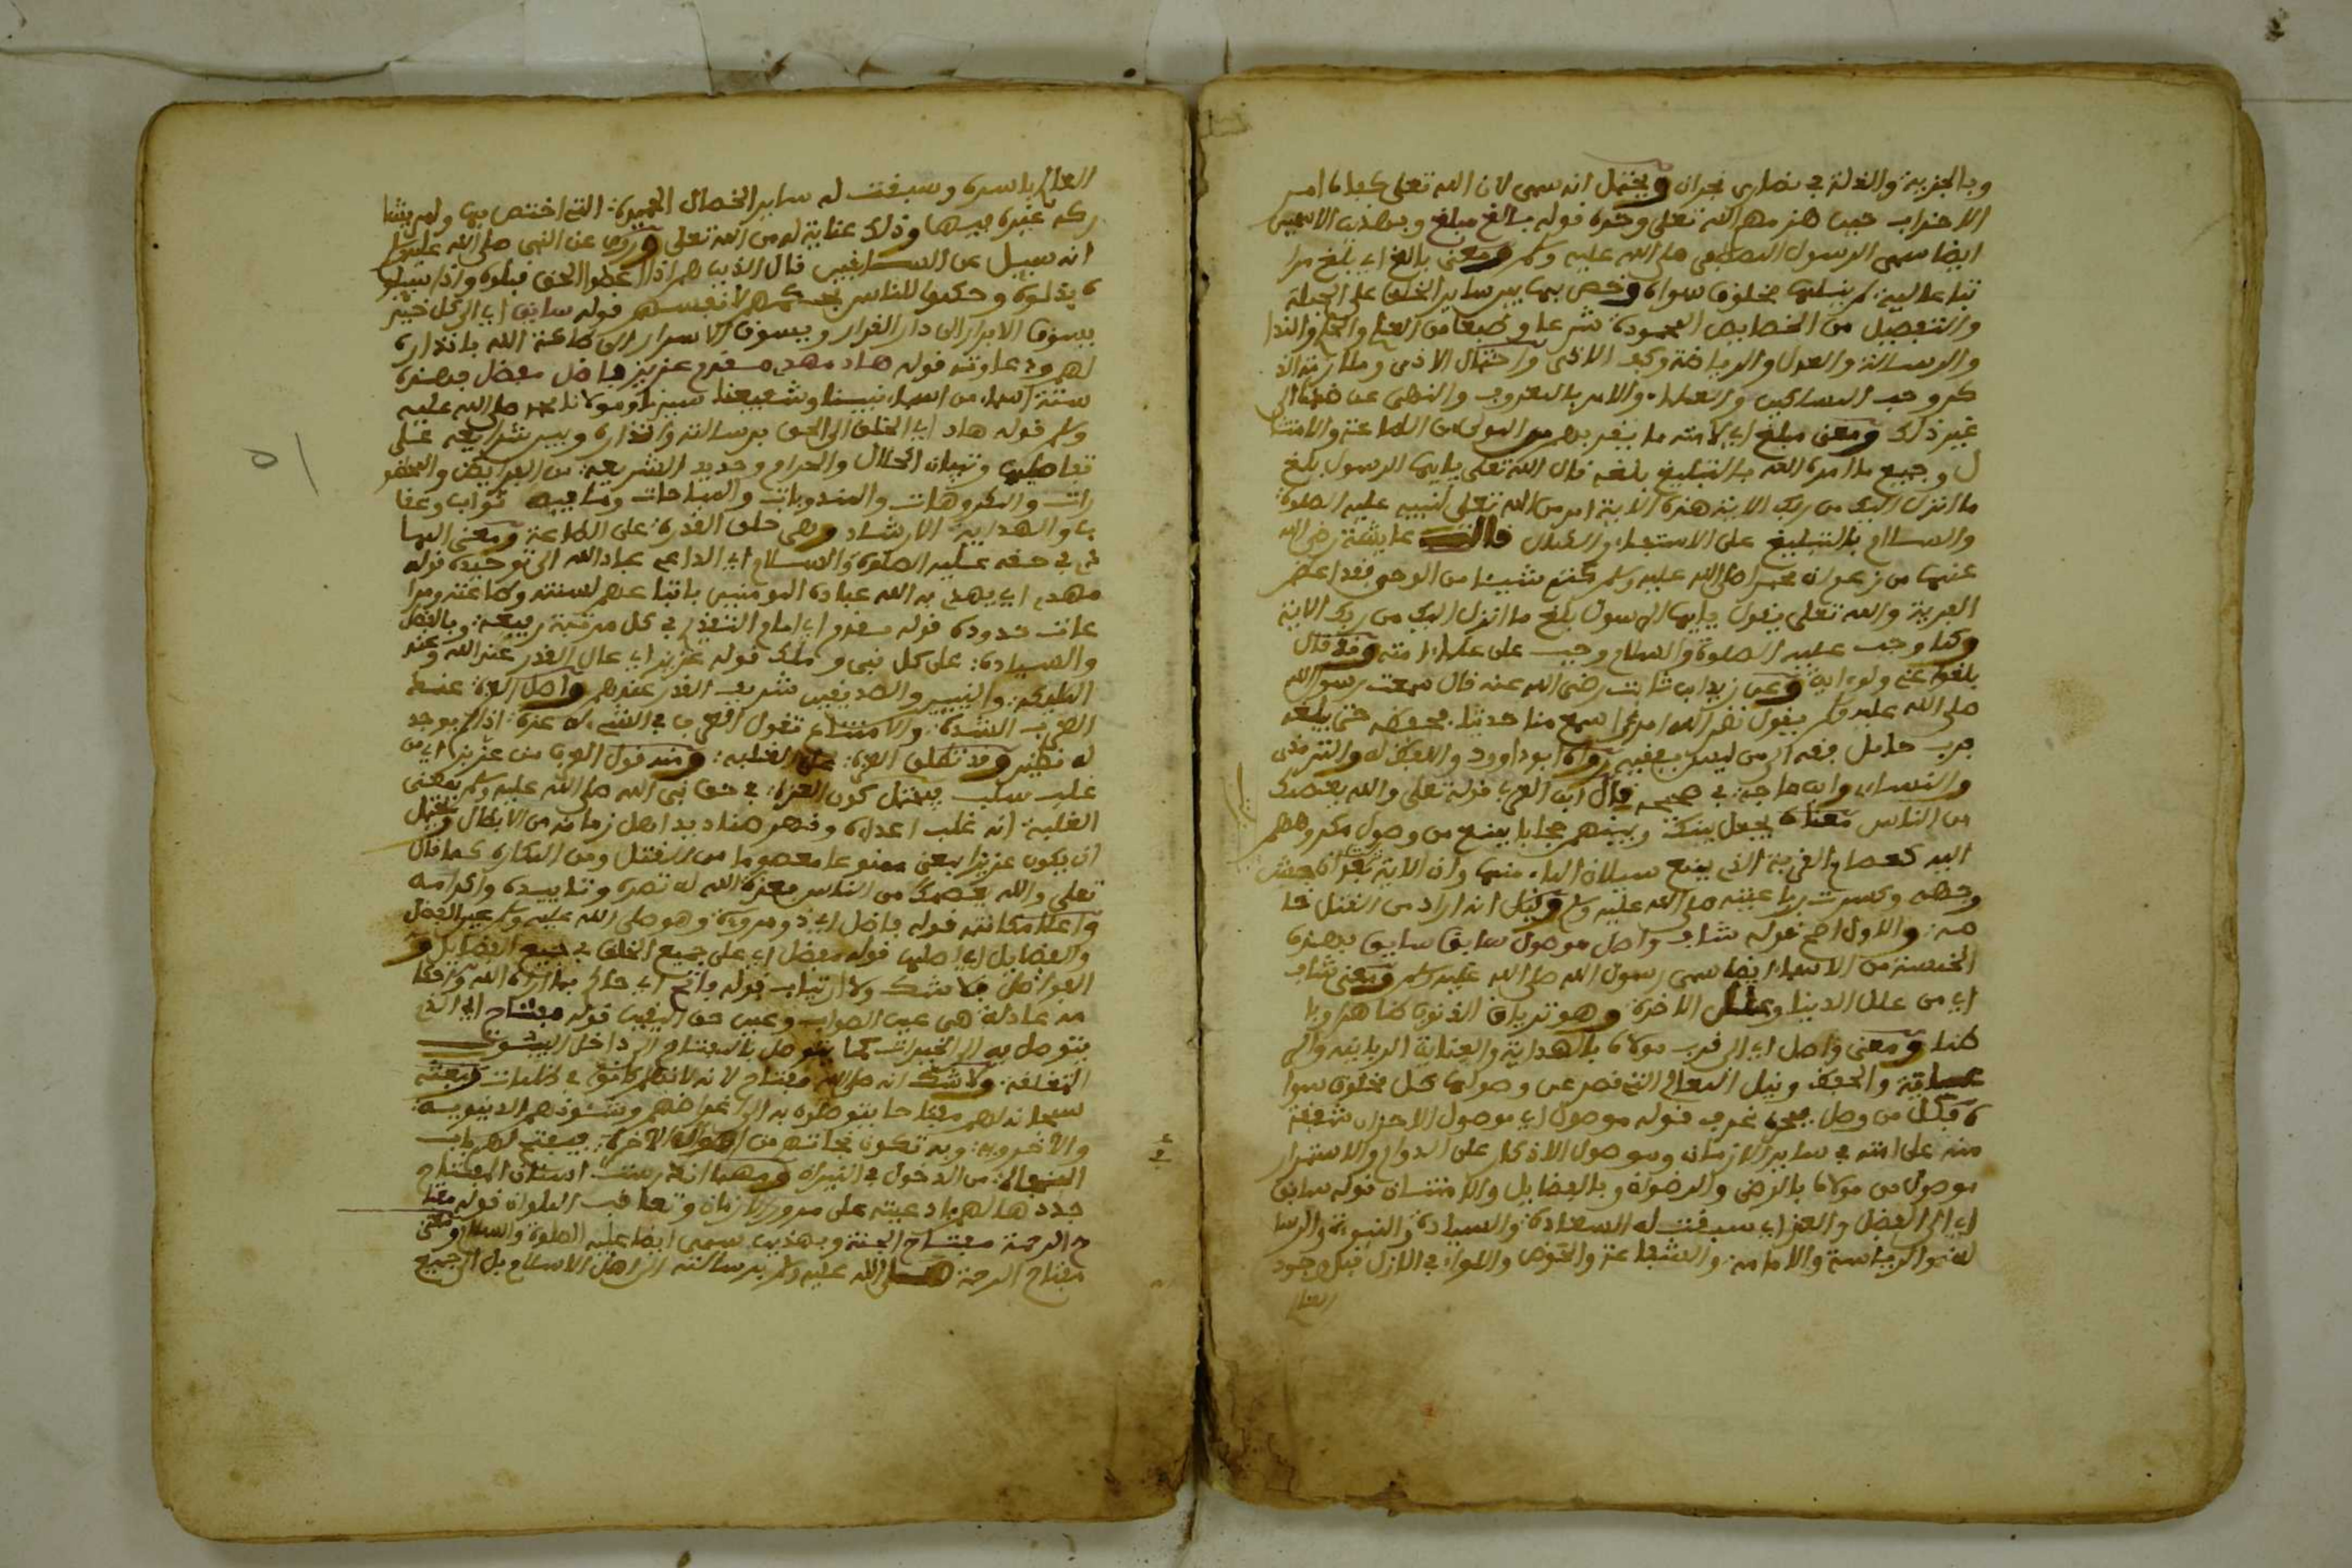 وبالجزية والذلة في نصارى نجران ويحتمل انه سمى لان الله تعلى كفاه امر
الاحزاب حين هزمهم الله تعلى وحده قوله بالغ مبلغ وبهذين الاسمين
ايضا سمى الرسول المصطفى صلى الله عليه وسلم ومعنى بالغ اي بلغ مرا
تبا عالية لم ينلها مخلوق سواه وخص بها من ساير الخلق على الجملة
والتفصيل من الخصايص المحمودة شرعا وطبعا من العلم والحلم والندا
والرسالة والعدل والرياضة وكف الاذى واحتمال الاذى وملازمة الذ
كر وحب المساكين والعلماء والامر بالمعروف والنهى عن ضده الى
غير ذلك ومعنى مبلغ اي لامته ما يقربهم من المولى من الطاعة والامتثا
ل وجميع ما امره الله بالتبليغ بلغه قال الله تعلى يايها الرسول بلغ
ما انزل اليك من ربك الاية هذه الاية امر من الله تعلى لنبيه عليه الصلوة
والسلام بالتبليغ على الاستيفاء والكمال قالت عايشة رضى الله
عنها من زعم ان محمدا صلى الله عليه وسلم كتم شيئا من الوحى فقد اعظم
الفرية والله تعلى يقول يايها الرسول بلغ ما انزل اليك من ربك الاية
وكما وجب عليه الصلوة والسلام وجب على علماء امته وقد قال
بلغوا عنى ولو اية وعن زيد ابن ثابت رضى الله عنه قال سمعت رسول الله
صلى الله عليه وسلم يقول نضر الله امرءا سمع منا حديثا فحفظه حتى يبلغه
فرب حامل فقه الى من ليس بفقيه رواه ابو داوود واللفظ له والترمذى
والنساءى وابن ماجة في صحيحه قال ابن العربي قوله تعلى والله يعصمك
من الناس معناه يجعل بينك وبينهم حجابا يمنع من وصول مكروههم
اليك كعصام القربة الذي يمنع سيلان الماء منها وان الاية بعد ان شج
وجهه وكسرت رباعيته صلى الله عليه وسلم وقيل انه اراد من القتل خا
صة والاول اصح قوله شاف واصل موصول سابق سايق بهذه
الخمسة من الاسماء ايضا سمى رسول الله صلى الله عليه وسلم ومعنى شاف
اي من علل الدنيا وعلل الاخرة وهو ترياق الذنوب ظاهرا وبا
طنا ومعنى واصل اي الى قرب مولاه بالهداية والعناية الربانية والى
والحفظ ونيل المعالي التي قصر عن وصولها كل مخلوق سوا
ه فكل من وصل بحره غرف قوله موصول اي موصول الاحزان شفقة
منه على امته في ساير الازمان وموصول الاذكار على الدوام والاستمرار
موصول من مولاه بالرضى والرضوان وبالفضايل والامتنان قوله سابق
اي الى الفضل والعز اي سبقت له السعادة والسيادة والنبوة والرسا
لة والرياسة والامامة والشفاعة والحوض واللواء في الازل قبل وجود
العالم
العالم باسره وسبقت له ساير الخصال الحميدة التي اختص بها ولم يشا
ركه غيره فيها وذلك عناية له من الله تعلى وروي عن النبى صلى الله عليه وسلم
انه سيل عن السابقين قال الذين هم اذا اعطوا الحق قبلوه واذا سيلو
ه بذلوه وحكموا للناس كحكمهم لانفسهم قوله سايق اي الى كل خير
يسوق الابرار الى دار القرار ويسوق الاشرار الى طاعة الله بانذاره
لهم ودعاوته قوله هاد مهد مقدم عزيز فاضل مفضل بهذه
ستة اسماء من اسماء نبينا وشفيعنا سيدنا ومولانا محمد صلى الله عليه
وسلم قوله هاد اي الخلق الى الحق برسالته وانذاره وبين شرايعه على
تفاصيلها وتبيان الحلال والحرام وحدود الشريعة من الفرايض والمحظو
رات والمكروهات والمندوبات والمباحات وما فيه ثواب وعقا
ب والهداية الارشاد وهى خلق القدرة على الطاعة ومعنى الهدا
ية في حقه عليه الصلوة والسلام اي الداعى عباد الله الى توحيده قوله
مهد اي يهدي به الله عباده المومنين باتباعهم لسنته وطاعته ومرا
عات حدوده قوله مقدم اي امام التقدم في كل مرتبة رفيعة وبالفضل
والسيادة على كل نبى وملك قوله عزيز اي عال القدر عند الله وعند
الملايكة والنبيين والصديقين شريف القدر عندهم واصل العزة عند
العرب الشدة والامتناع تقول العرب في الشىء له عزة اذا لم يوجد
له نظير وقد تطلق العزة على الغلبة ومنه قول العرب من عز بز اي من
غلب سلب يحتمل كون العزة في حق نبى الله صلى الله عليه وسلم بمعنى
الغلبة انه غلب اعداه وقهر صناديد اهل زمانه من الابطال ويحتمل
ان يكون عزيزا بمعنى ممنوعا معصوما من القتل ومن المكاره كما قال
تعلى والله يعصمك من الناس فعزة الله له نصره وتاييده واكرامه
واعلا مكانته قوله فاضل اي ذو مروءة وهو صلى الله عليه وسلم عين الفضل
والفضايل اي اصلها قوله مفضل اي على جميع الخلق في جميع الفضايل و
الفواضل بلا شك ولا ارتياب قوله فاتح اي حاكم بما اراه الله واحكا
مه عادلة هى عين الصواب وعين حق اليقين قوله مفتاح اي الذي
يتوصل به الى الخيرات كما يتوصل بالمفتاح الى داخل البيوت
المغلقة ولا شك انه صلى الله مفتاح لان الانام كانوا في ظلمات فبعثه
سبحانه لهم مفتاحا يتوصلون به الى اغراضهم وشئونهم الدنيوية
والاخروية وبه تكون نجاتهم من اهوال الاخرة فيفتح لهم باب
النجاة من الدخول في النيران ومهما اندرست اسنان المفتاح
جددها لهم بادعيته على مرور الازمان وتعاقب الملوان قوله مفتا
ح الرحمة مفتاح الجنة وبهذين سمى ايضا عليه الصلوة والسلام ومعنى
مفتاح الرحمة صلى الله عليه وسلم برسالته الى اهل الاسلام بل الى جميع